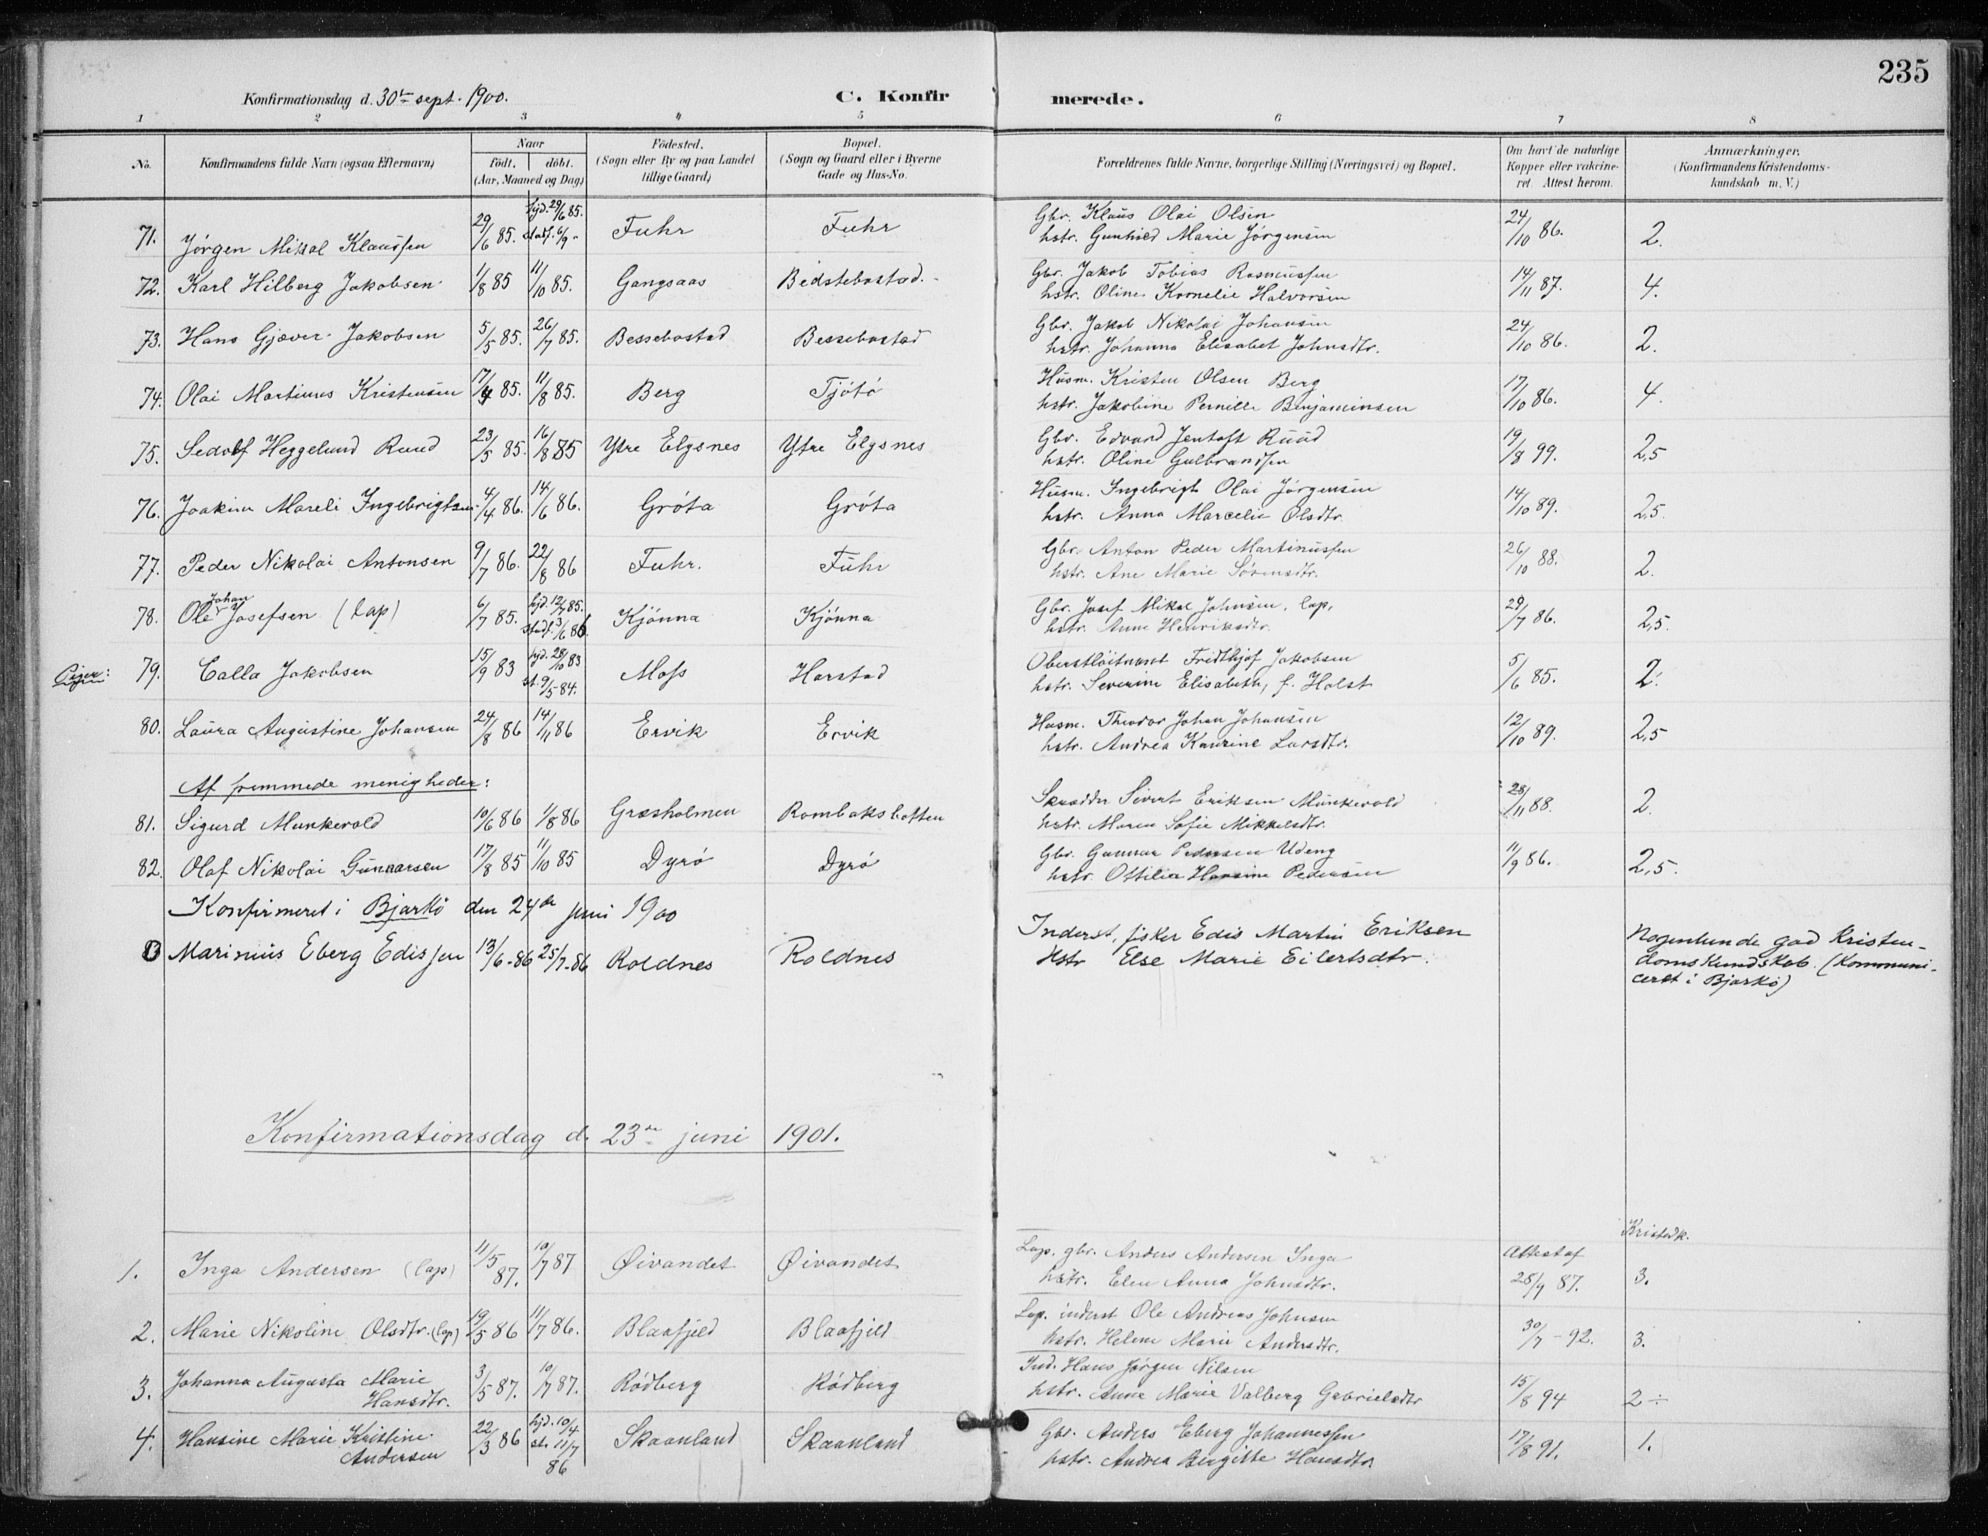 235
Konfirmationsdag d. 30te sept. 1900. C. Konfirmerede.
1 2 3 4 5 6 7 8
No. Konfirmandens fulde Navn (ogsaa Efternavn) Naar født. døbt. (Aar, Maaned og Dag) Fødested. (Sogn eller By og paa Landet tillige Gaard) Bopæl. (Sogn og Gaard eller i Byerne Gade og Hus-No. Forældrenes fulde Navne, borgerlige Stilling (Næringsvei) og Bopæl. Om havt de naturlige Kopper eller vakcineret Attest herom. Anmærkninger. (Konfirmandens Kristendomskundskab m. V.)
71. Jørgen Mikal Klaussen 29/6 85. hjd. 29/6 85. stadf. 6/9 - Fuhr Fuhr Gbr. Klaus Olai Olsen 24/10 86. 2.
hstr. Gunhild Marie Jørgensen
72. Karl Hilberg Jakobsen 1/8 85 11/10 85. Gangsaas Bedstebostad. Gbr. Jakob Tobias Rasmussen 14/11 87. 4.
hstr. Oline Kornelie Halvorsen
73. Hans Gjæver Jakobsen 5/5 85. 26/7 85. Bessebostad Bessebostad Gbr. Jakob Nikolai Johansen 24/10 86. 2.
hstr. Johanna Elisabet Johnsdtr.
74. Olai Martinus Kristensen 17/4 85. 11/8 85. Berg Tjøtø Husm. Kristen Olsen Berg 17/10 86. 4.
hstr. Jakobine Pernille Benjaminsen
75. Sedolf Heggelund Ruud 23/5 85. 16/8 85 Ytre Elgsnes Ytre Elgsnes Gbr. Edvard Jentoft Ruud 19/8 99. 2,5
hstr. Oline Gulbrandsen
76. Joakim Mareli Ingebrigtsen 4/4 86. 14/6 86. Grøta Grøta Husm. Ingebrigt Olai Jørgensen 14/10 89. 2,5.
hstr. Anna Marcelie Olsdtr.
77. Peder Nikolai Antonsen 9/7 86. 22/8 86 Fuhr. Fuhr Gbr. Anton Peder Martinussen 26/10 88. 2.
hstr. Ane Marie Sørensdtr.
78. Ole Johan Josefsen (lap) 6/7 85. hjd. 12/7 85. stadf. 3/6 86. Kjønna Kjønna Gbr. Josef Mikal Johnsen, lap, 29/7 86. 2,5.
hstr. Anne Henriksdtr.
Piger: 79. Calla Jakobsen 15/9 83 hjd. 28/10 83 st. 9/5 84. Moss Harstad Oberstløitnant Fridthjof Jakobsen 5/6 85. 2.
hstr. Severine Elisabeth, f. Holst
80. Laura Augustine Johansen 24/8 86 14/11 86 Ervik Ervik Husm. Theodor Johan Johansen 12/10 89. 2,5
hstr. Andrea Kaurine Larsdtr.
Af fremmede menigheder:
81. Sigurd Munkevold 10/6 86 1/8 86 Græsholmen Rombaksbotten Skrædder Sivert Eriksen Munkevold 28/11 88. 2.
hstr. Maren Sofie Mikkelsdtr.
82. Olaf Nikolai Gunnarsen 17/8 85 11/10 85 Dyrø Dyrø Gbr. Gunnar Pedersen Udeng 11/9 86. 2,5.
hstr. Ottilia Hansine Pedersen
Konfirmeret i Bjarkø den 24de juni 1900
Marinius Eberg Edissen 13/6-86 25/7-86 Roldnes Roldnes Inderst, fisker Edis Martin Eriksen
Hstr Else Marie Eilertsdtr.
Nogenlunde god Kristendomskundskab. (Kommuniceret i Bjarkø)
Konfirmationsdag d. 23de juni 1901.
Kristedk.
1. Inga Andersen (lap) 11/5 87. 10/7 87 Øivandet Øivandet Lap. gbr. Anders Andersen Inga Attest af 28/9 87. 3.
hstr. Elen Anna Johnsdtr.
2. Marie Nikoline Olsdtr. (lap) 19/5 86 11/7 86. Blaafjeld Blaafjeld Lap. inderst Ole Andreas Johnsen 30/7-92. 3.
hstr. Helene Marie Andersdtr.
3. Johanna Augusta Marie Hansdtr. 3/5 87. 10/7 87. Rødberg Rødberg Ind. Hans Jørgen Nilsen 15/8 94 2 ÷
hstr. Anne Marie Valberg Gabrielsdtr
4. Hansine Marie Kristine Andersen 22/3 86 hjd. 10/4 st. 11/7 86 Skaanland Skaanland Gbr. Anders Eberg Johannessen 17/8 91. 1.
hstr. Andrea Bergitte Hansdtr.